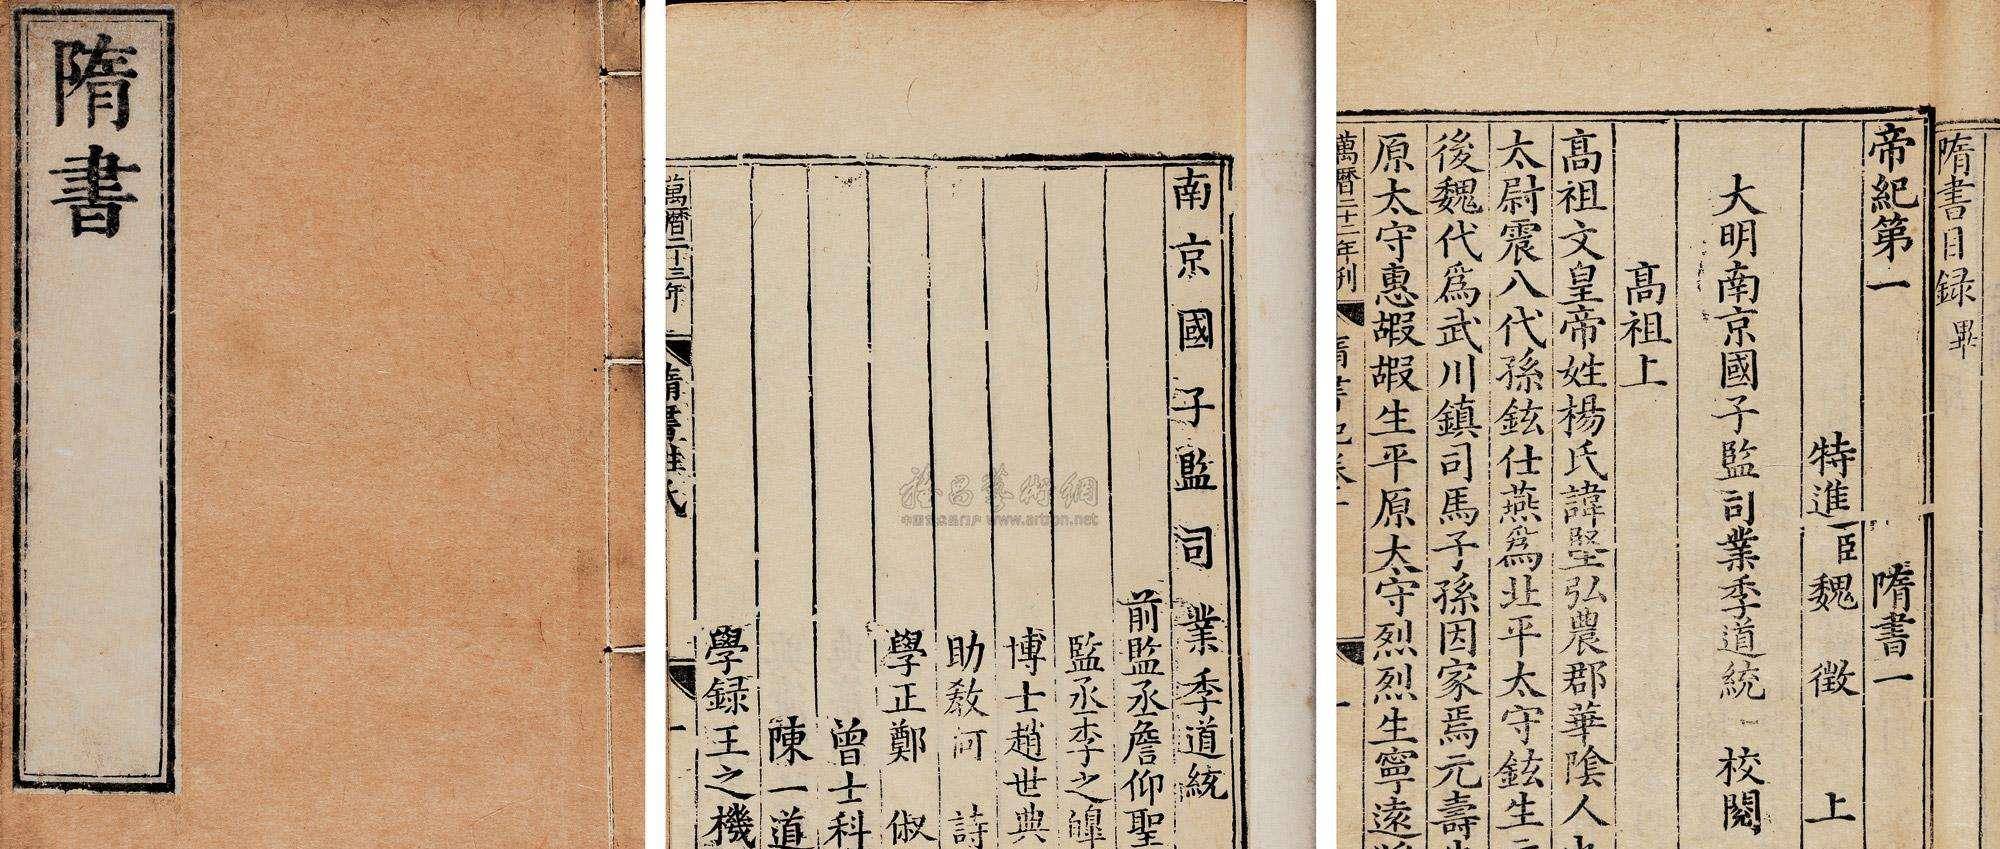 隋書
南京國子監司業季道統
前監丞詹仰聖
監丞李之皥
博士趙世典
助敎河詩
學正鄭俶
曾士科
陳一道
學録王之機
萬暦二十三年
隋書姓氏
一
隋書目録畢
帝紀第一 隋書一
特進臣魏徵上
大明南京國子監司業季道統校閱
高祖上
高祖文皇帝姓楊氏諱堅弘農郡華陰人也
太尉震八代孫鉉仕燕爲北平太守鉉生元
後魏代爲武川鎮司馬子孫因家焉元壽生
原太守惠嘏嘏生平原太守烈烈生寧遠將
萬暦二十二年刊
隋書紀卷一
一
www.artron.net